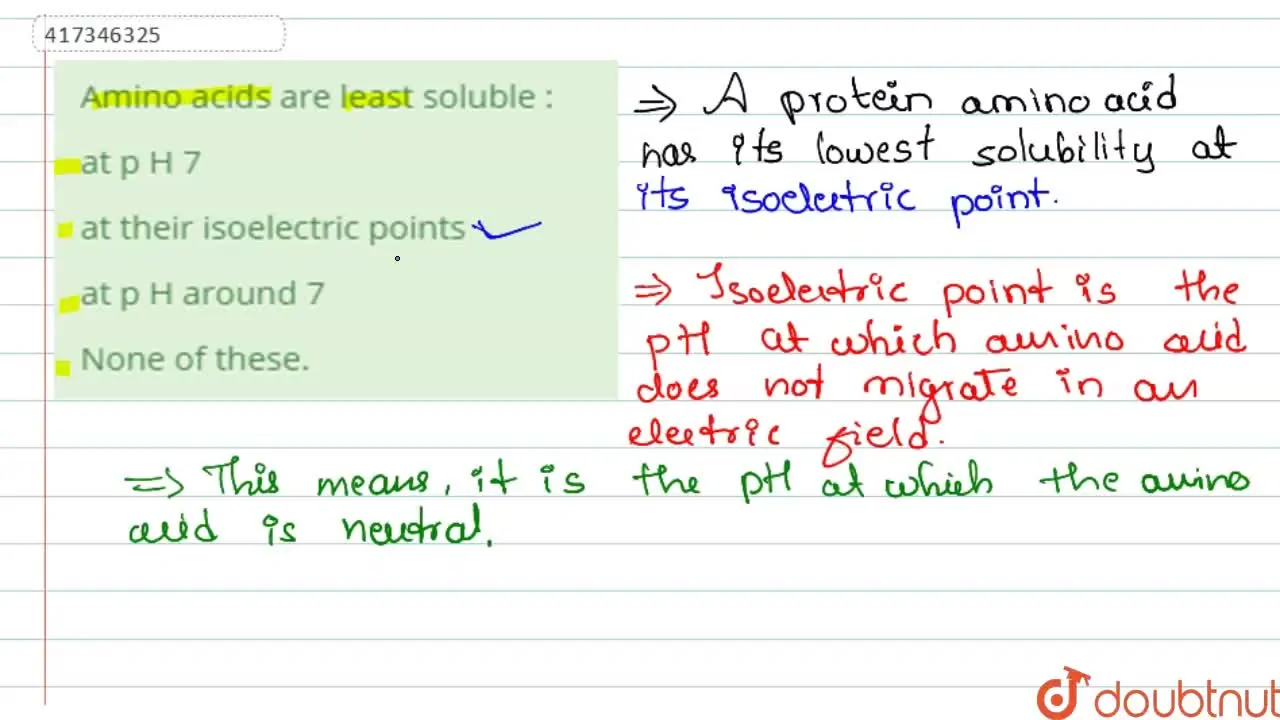 417346325
Amino acids are least soluble :
at p H 7
at their isoelectric points
at p H around 7
None of these.
⇒ A protein amino acid
has its lowest solubility at
its isoelectric point.
⇒ Isoelectric point is the
pH at which amino acid
does not migrate in an
electric field.
⇒ This means, it is the pH at which the amino
acid is neutral.
doubtnut